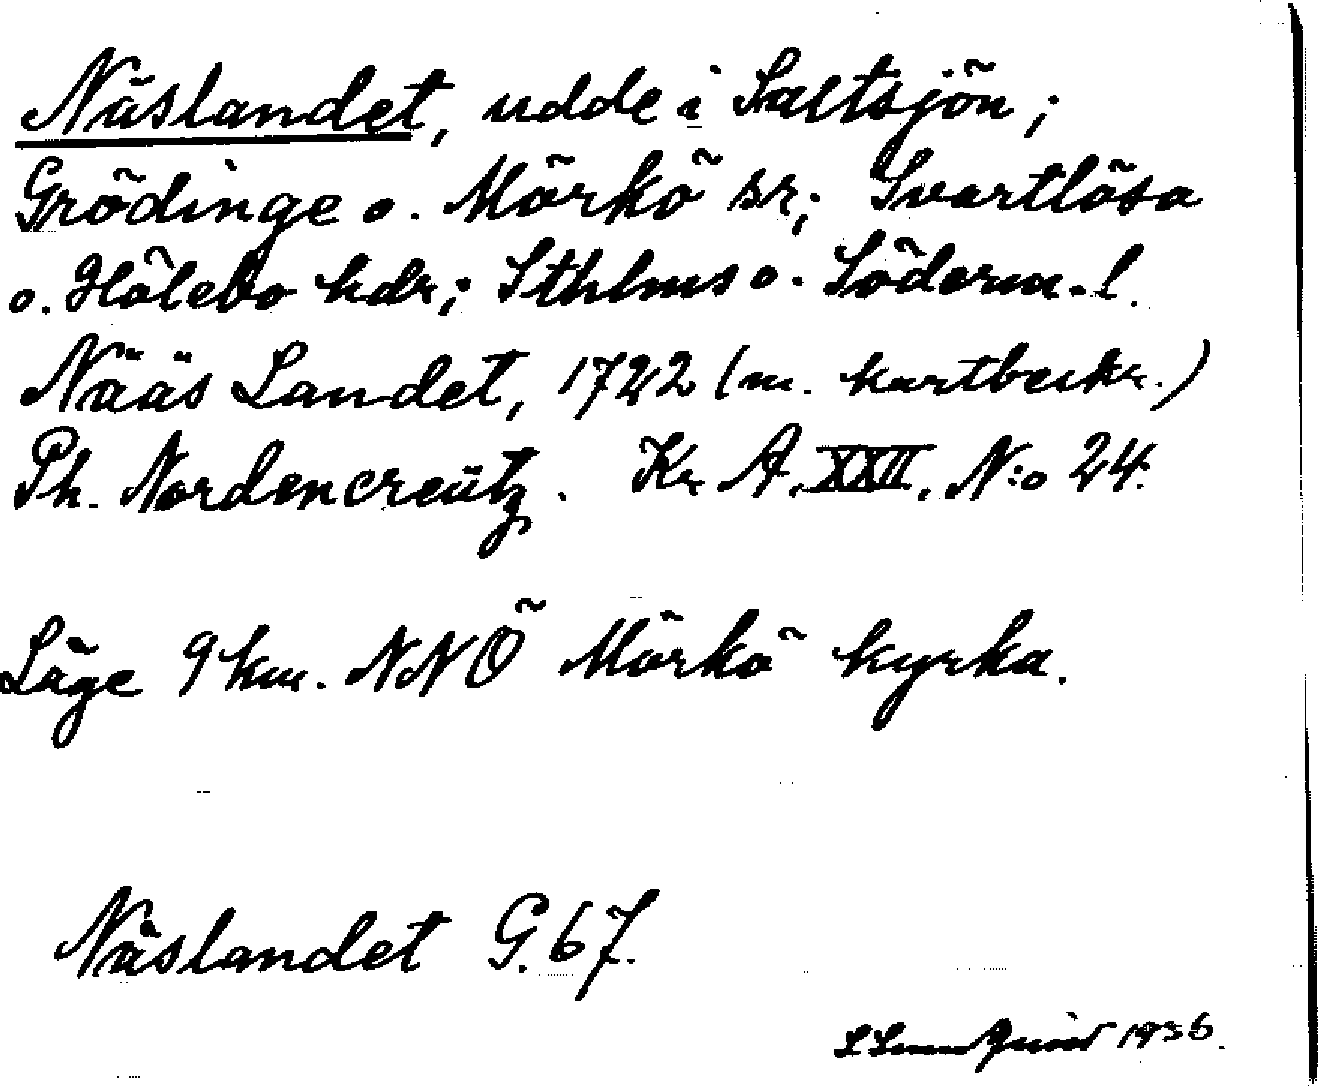 Näslandet, udde i Saltsjön;
Grödinge o. Mörkö sr; Svartlösa
o. Hölebo hdr; Sthlms o. Söderm. l.
Nääs Landet, 1722 (m. kartbeskr.)
Ph. Nordencreütz. Kr A. XXII. N:o 24.
Läge 9 km. NNÖ Mörkö kyrka.
Näslandet G. 67.
1936.